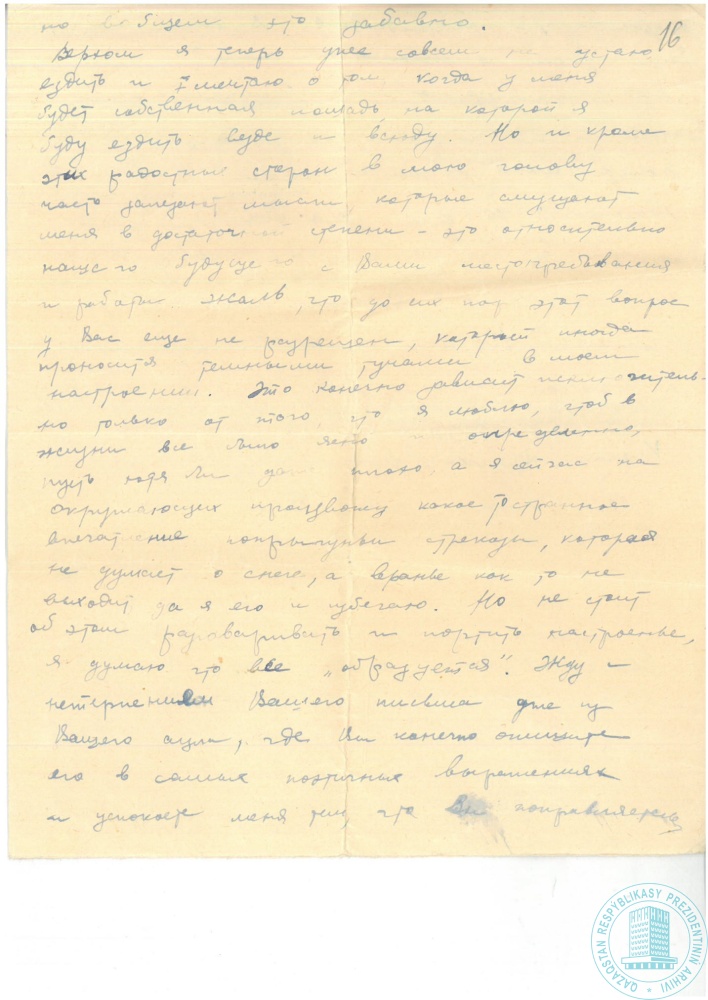 но вобщем это забавно.
16
Верхом я теперь уже совсем не устаю
ездить и мечтаю о том, когда у меня
будет собственная лошадь, на которой я
буду ездить везде и всюду. Но и кроме
этих радостных сторон в мою голову
часто мысли, которые смущают
меня в достаточной степени – это относительно
нашего будущего с Вами местопребывания
и работы. Жаль, что до сих пор этот вопрос
у Вас еще не разрешен, который иногда
проносится темными тучами в моем
настроении. Это конечно зависит исключитель-
но только от того, что я люблю, чтоб в
жизни все было ясно и определенно,
пусть хотя бы даже плохо, а я сейчас на
окружающих произвожу какое то странное
впечатление попрыгуньи стрекозы, которая
не думает о снеге, а вранье как то не
выходит да я его и избегаю. Но не стоит
об этом разговаривать и портить настроенье,
я думаю что все „образуется". Жду с
нетерпением Вашего письма уже из
Вашего аула, где Вы конечно опишите
его в самых поэтичных выражениях
и успокоете меня тем, что Вы поправляетесь
QAZAQSTAN RESPÝBLIKASY PREZIDENTINIŃ ARHIVI